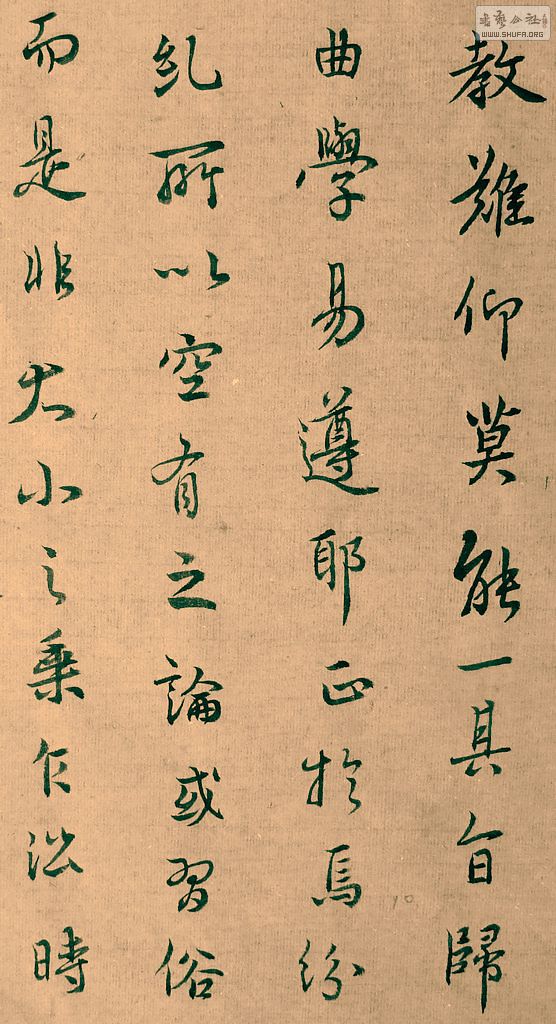 教難仰莫能一其旨歸
曲學易遵耶正於焉紛
糺所以空有之論或習俗
而是非大小之乘乍沿時
書藝公社
WWW.SHUFA.ORG